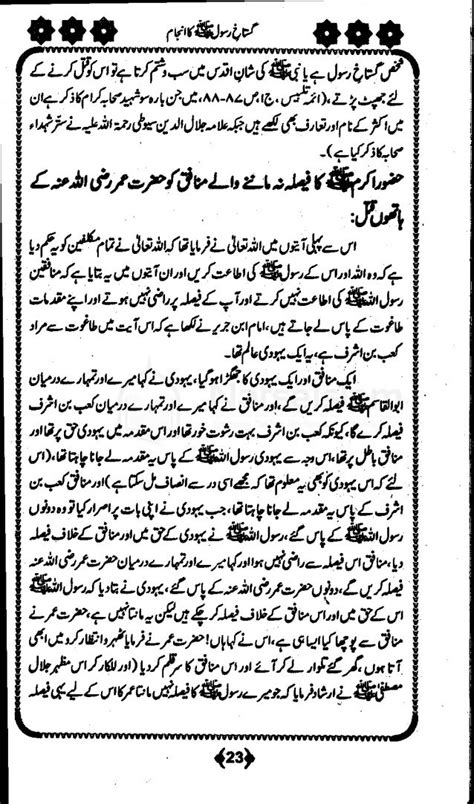 گستاخ رسول ﷺ کا انجام
شخص گستاخ رسول ہے یا نبی ﷺ کی شان اقدس میں سب وشتم کرتا ہے تو اس کو قتل کرنے کے
لئے جھپٹ پڑتے، (ائمہ تلبیس، ج۱، ص ۸۷-۸۸، میں جن بارہ سو شہید صحابہ کرام کا ذکر ہے ان
میں اکثر کے نام اور تعارف بھی لکھے ہیں جبکہ علامہ جلال الدین سیوطی رحمۃ اللہ علیہ نے ستر شہداء
صحابہ کا ذکر کیا ہے)۔
حضور اکرم ﷺ کا فیصلہ نہ ماننے والے منافق کو حضرت عمر رضی اللہ عنہ کے
ہاتھوں قتل:
اس سے پہلی آیتوں میں اللہ تعالیٰ نے فرمایا تھا کہ اللہ تعالیٰ نے تمام مکلفین کو یہ حکم دیا
ہے کہ وہ اللہ اور اس کے رسول ﷺ کی اطاعت کریں اور ان آیتوں میں یہ بتایا ہے کہ منافقین
رسول اللہ ﷺ کی اطاعت نہیں کرتے اور آپ کے فیصلہ پر راضی نہیں ہوتے اور اپنے مقدمات
طاغوت کے پاس لے جاتے ہیں، امام ابن جریر نے لکھا ہے کہ اس آیت میں طاغوت سے مراد
کعب بن اشرف ہے، یہ ایک یہودی عالم تھا۔
ایک منافق اور ایک یہودی کا جھگڑا ہو گیا، یہودی نے کہا میرے اور تمہارے درمیان
ابوالقاسم ﷺ فیصلہ کریں گے، اور منافق نے کہا میرے اور تمہارے درمیان کعب بن اشرف
فیصلہ کرے گا، کیونکہ کعب بن اشرف بہت رشوت خور تھا اور اس مقدمہ میں یہودی حق پر تھا اور
منافق باطل پر تھا، اس وجہ سے یہودی رسول اللہ ﷺ کے پاس یہ مقدمہ لے جانا چاہتا تھا، (اس
لئے کہ اس یہودی کو بھی یہ معلوم تھا کہ مجھے اسی در سے انصاف مل سکتا ہے) اور منافق کعب بن
اشرف کے پاس یہ مقدمہ لے جانا چاہتا تھا، جب یہودی نے اپنی بات پر اصرار کیا تو وہ دونوں
رسول اللہ ﷺ کے پاس گئے، رسول اللہ ﷺ نے یہودی کے حق میں اور منافق کے خلاف فیصلہ
دیا، منافق اس فیصلہ سے راضی نہیں ہوا اور کہا میرے اور تمہارے درمیان حضرت عمر رضی اللہ عنہ
فیصلہ کریں گے، دونوں حضرت عمر رضی اللہ عنہ کے پاس گئے، یہودی نے بتا دیا کہ رسول اللہ ﷺ
اس کے حق میں اور اس منافق کے خلاف فیصلہ کر چکے ہیں لیکن یہ مانتا نہیں ہے، حضرت عمر نے
منافق سے پوچھا کیا ایسا ہی ہے، اس نے کہا ہاں! حضرت عمر نے فرمایا ٹھہرو انتظار کرو میں ابھی
آتا ہوں، گھر گئے تلوار لے کر آئے اور اس منافق کا سر قلم کر دیا (اور للکار کر اس مظہر جلال
مصطفی ﷺ نے ارشاد فرمایا کہ جو میرے رسول ﷺ کا فیصلہ نہیں مانتا عمر کا اس کے لیے یہی فیصلہ
23